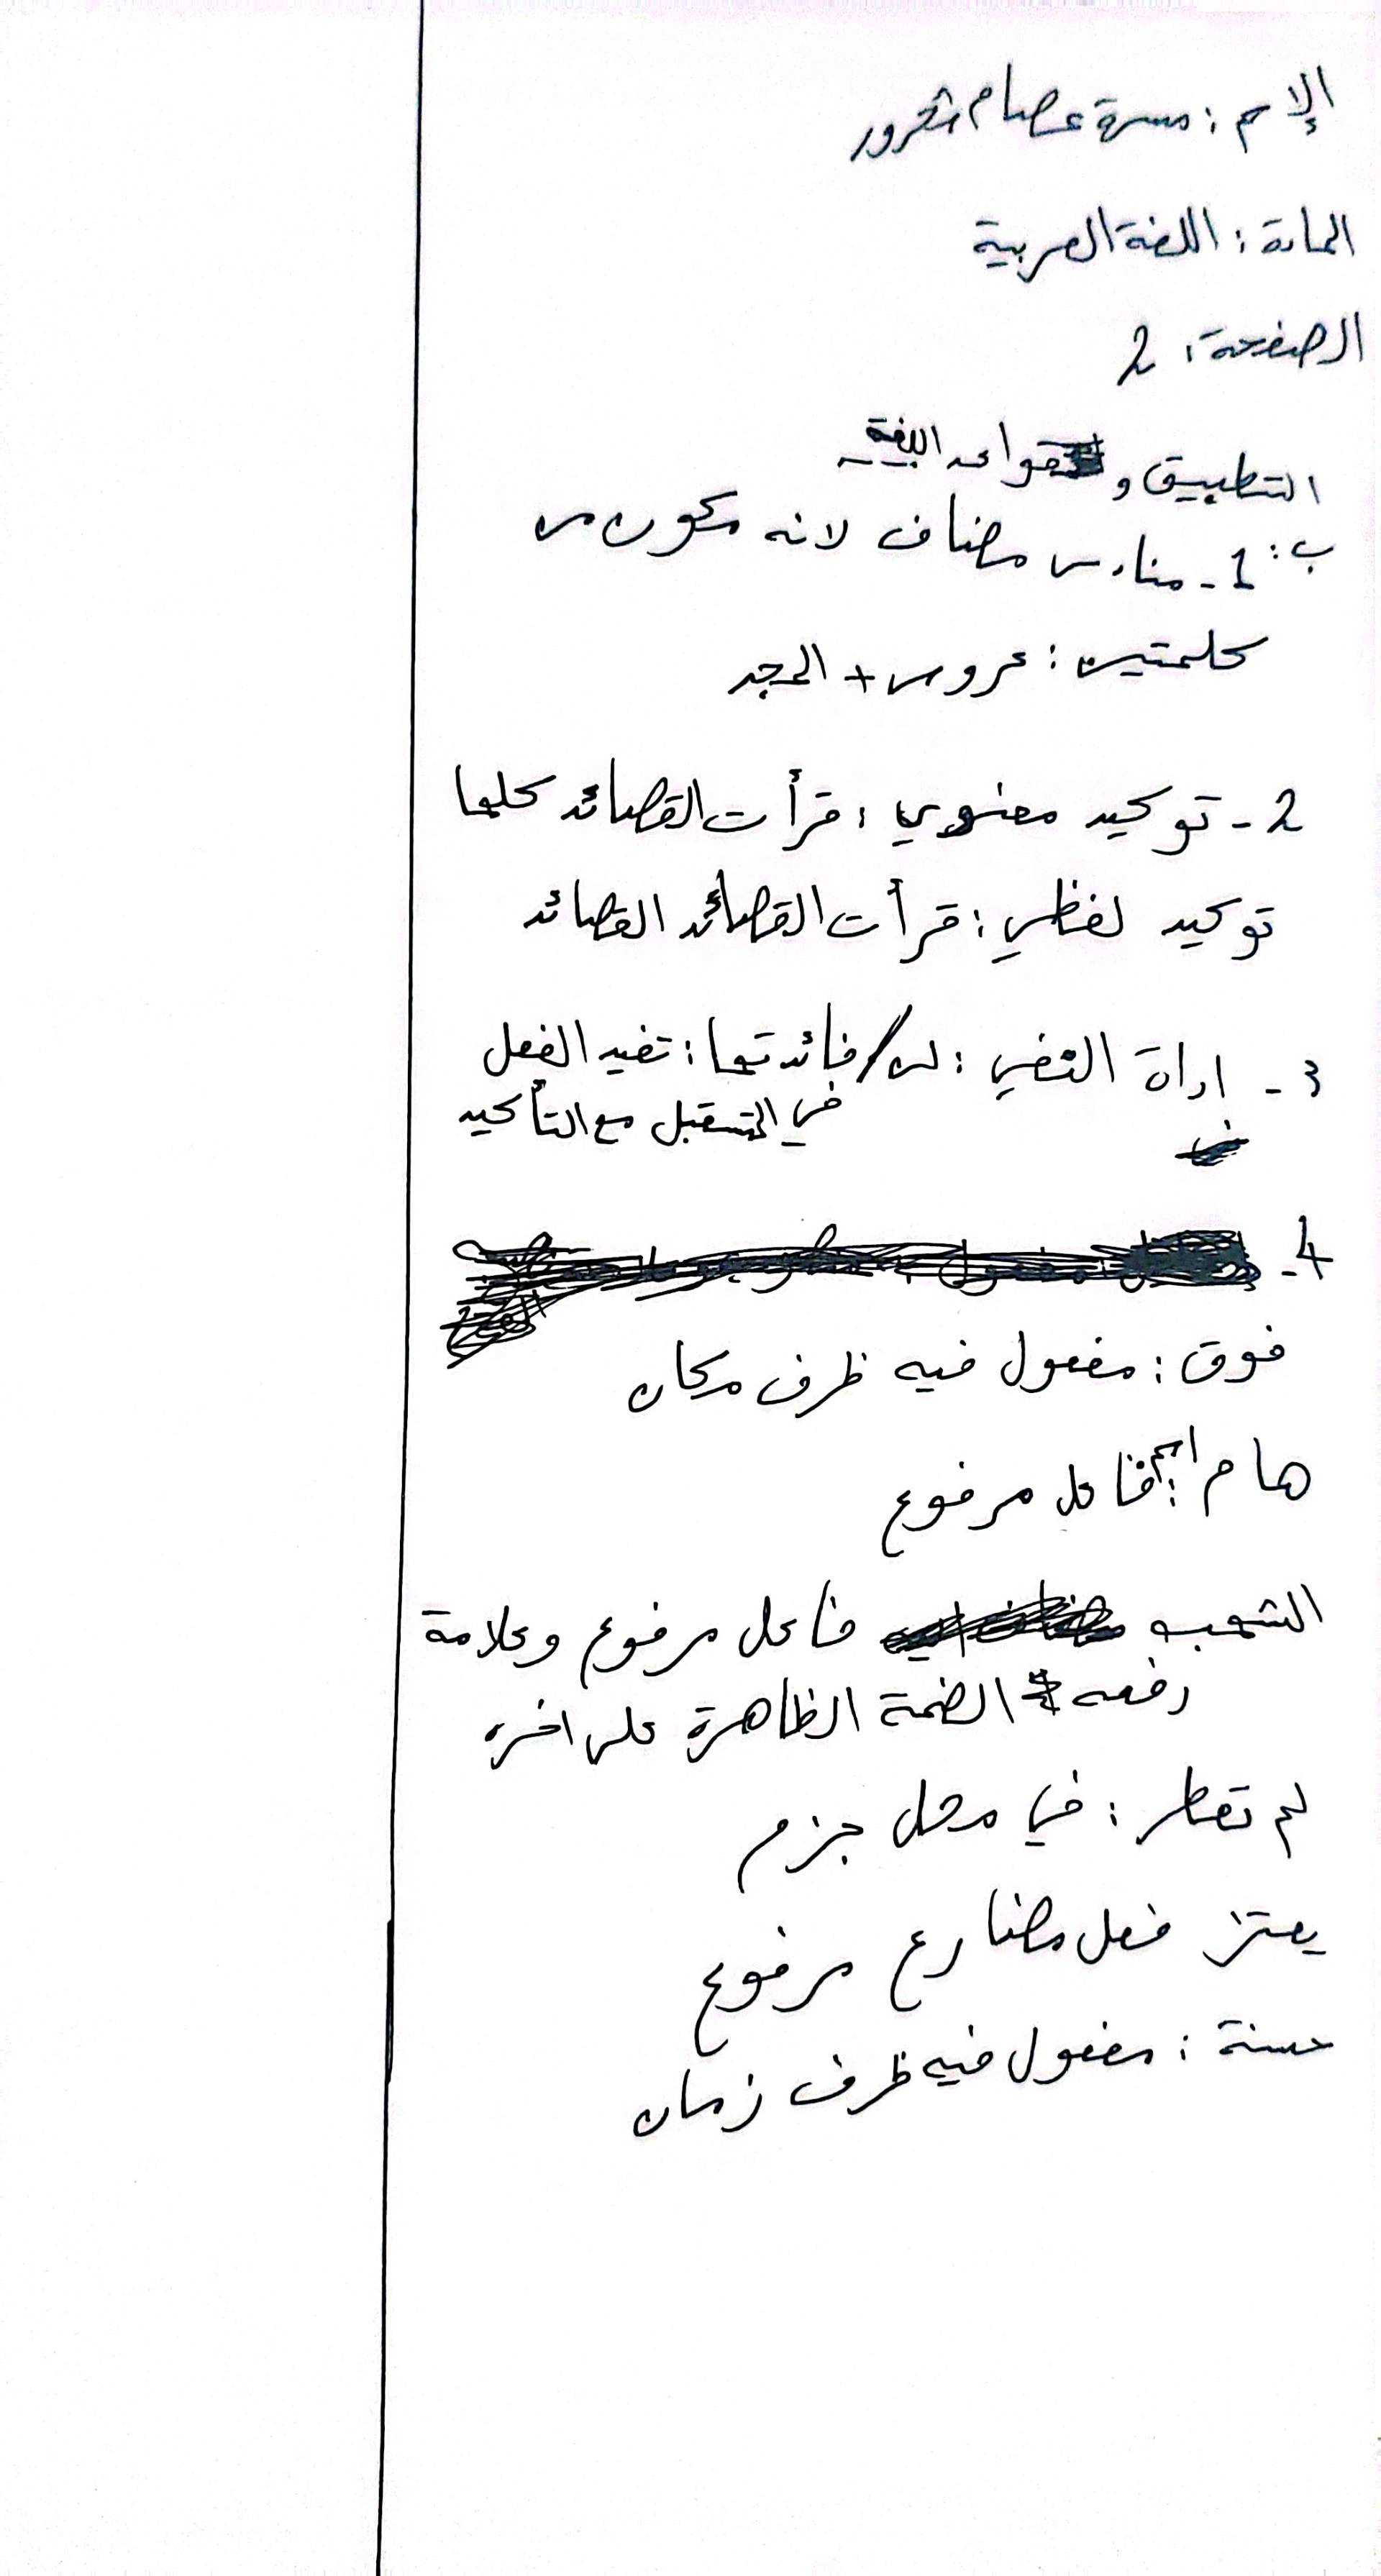 الإسم : مسرة عصام شحرور
المادة : اللغة العربية
الصفحة : 2
التطبيق و قواعد اللغة
ب :
1 - منادى مضاف لانه مكون من
كلمتين : عروس + المجد
2 - توكيد معنوي : قرأت القصائد كلها
توكيد لفظي : قرأت القصائد القصائد
3 - اداة النفي : لن / فائدتها : تفيد الفعل
في المتسقبل مع التأكيد
4 -
فوق : مفعول فيه ظرف مكان
هام : اسم فاعل مرفوع
الشهب فاعل مرفوع وعلامة
رفعه الضمة الظاهرة على اخره
لم تعطر : في محل جزم
يعتز فعل مضارع مرفوع
حسنة : مفعول فيه ظرف زمان